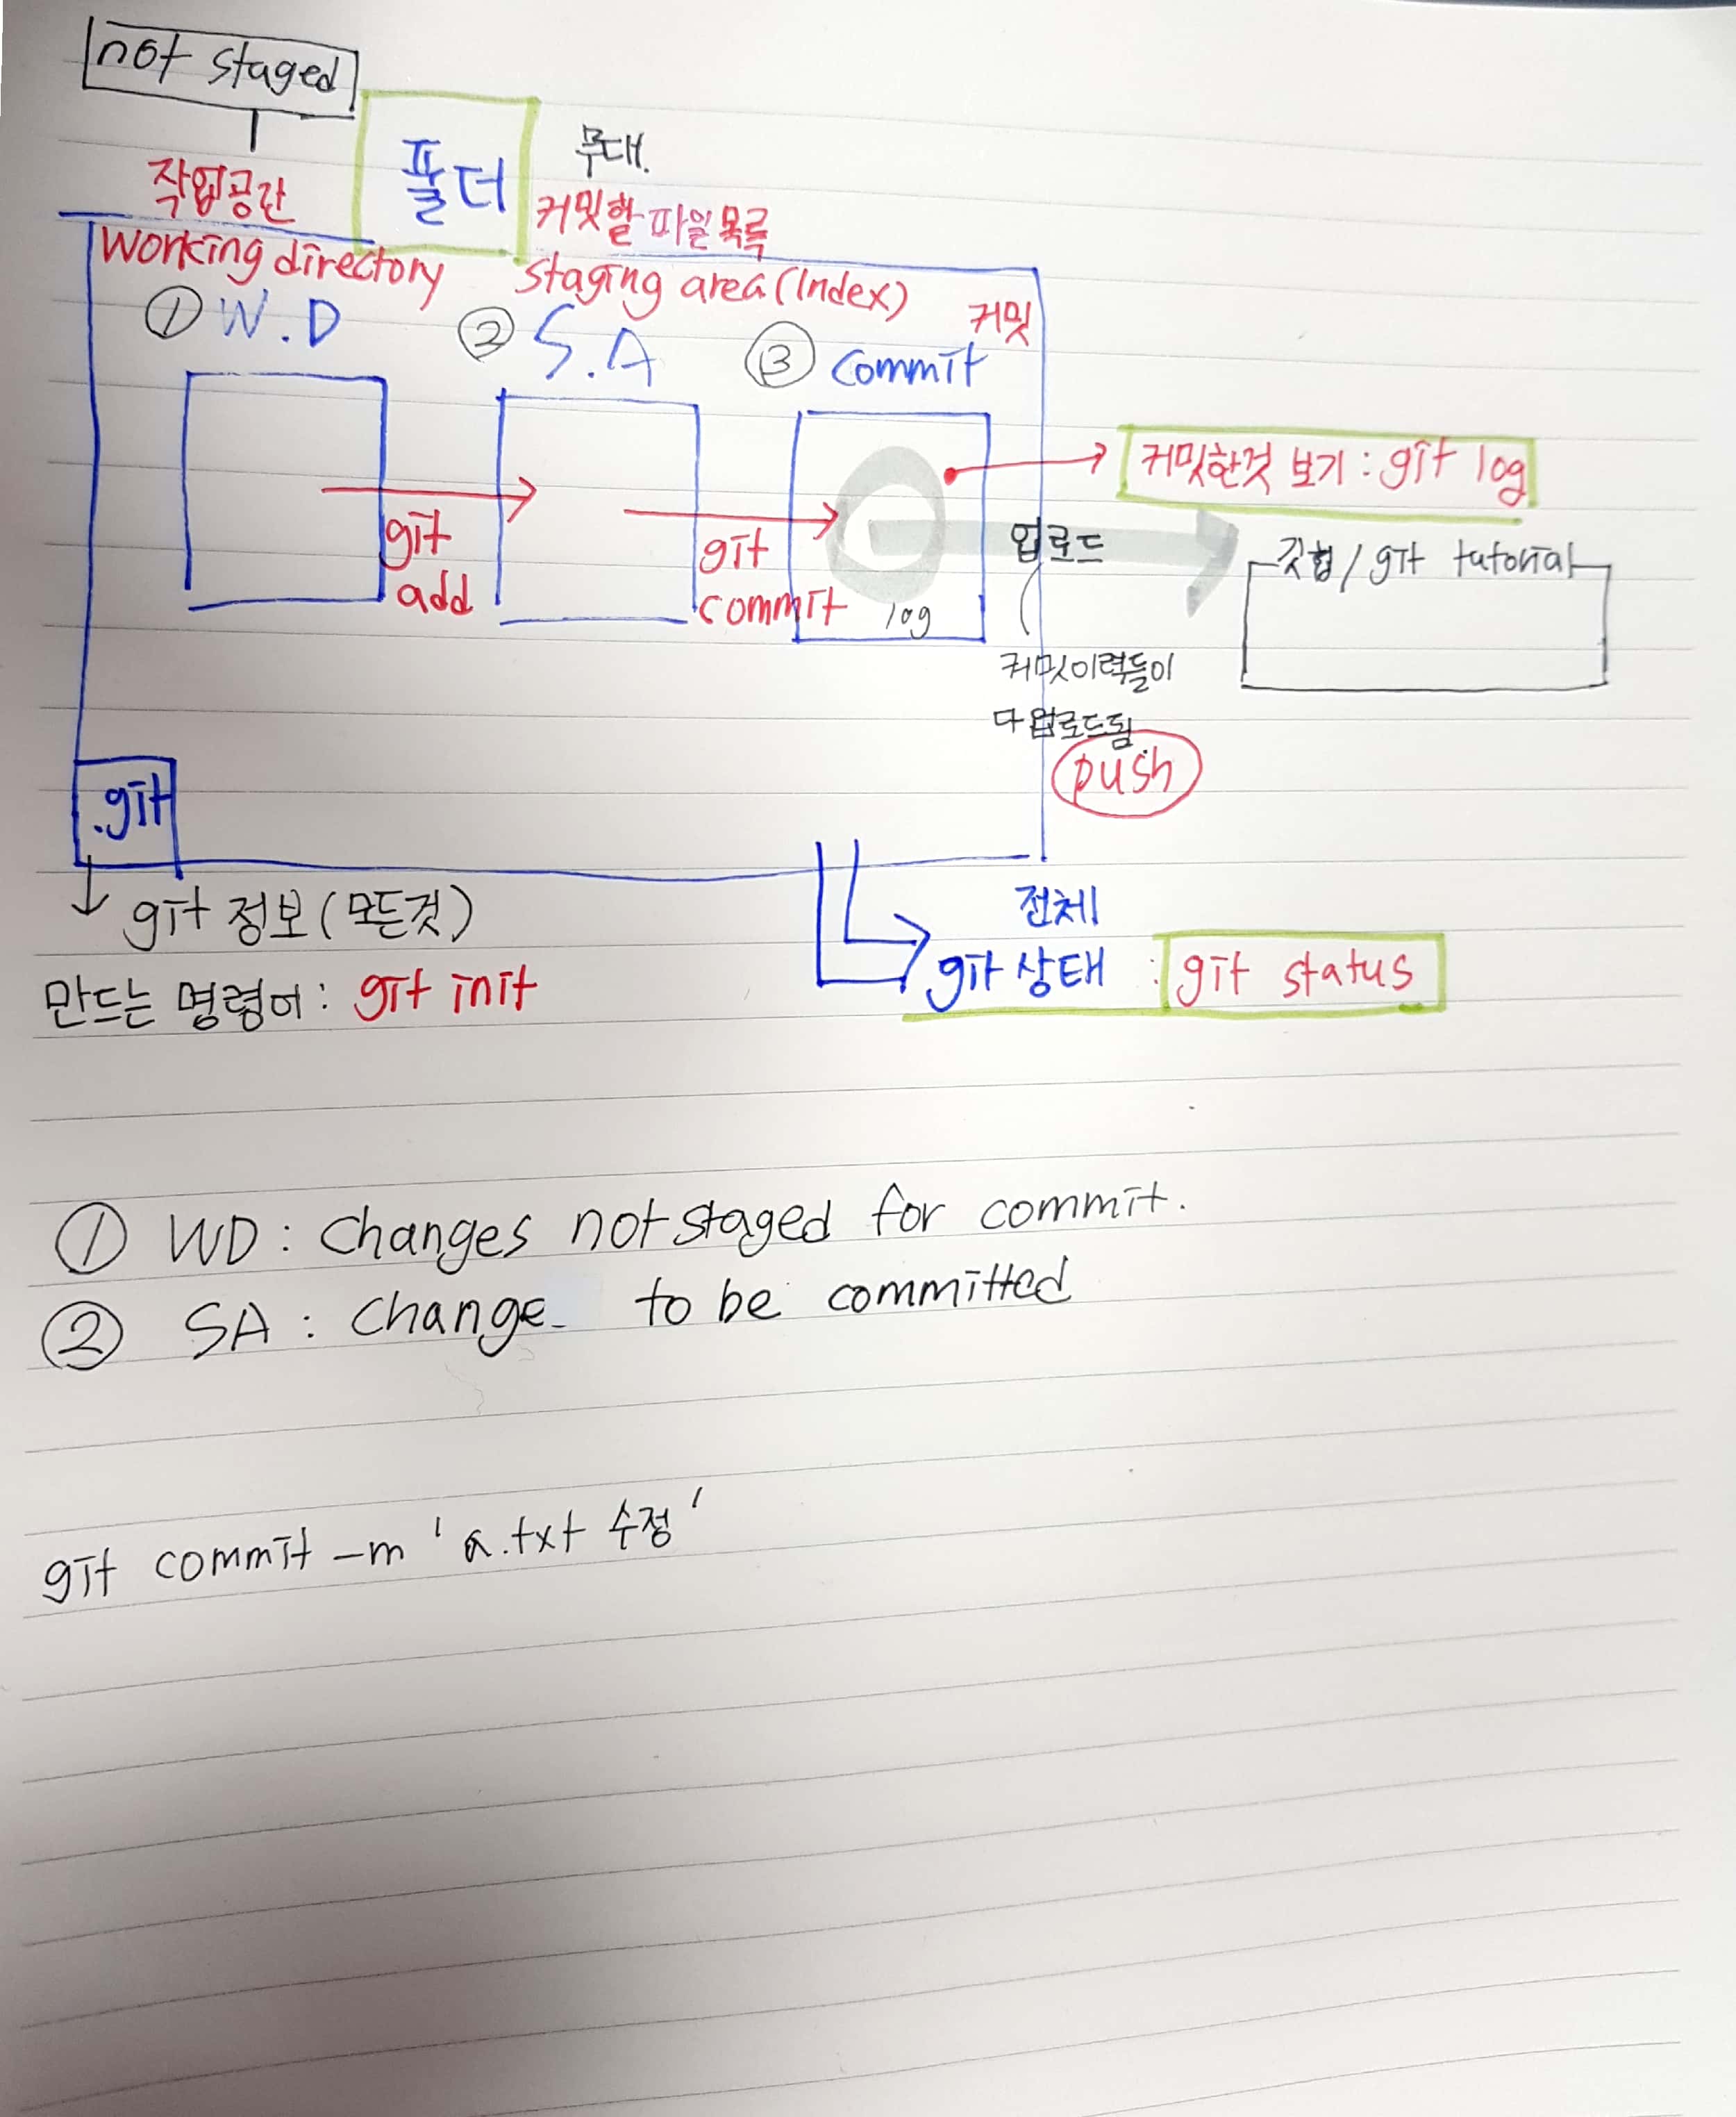 not staged
작업공간
폴더
무대.
커밋할 파일 목록
working directory
staging area (Index)
커밋
① W.D
② S.A
③ commit
git add
git commit
log
커밋한것 보기 : git log
업로드
깃헙 / git tutorial
커밋이력들이
다 업로드됨.
push
.git
git 정보 (모든것)
만드는 명령어 : git init
전체
git 상태 : git status
① WD : Changes not staged for commit.
② SA : Change to be committed
git commit -m 'a.txt 수정'